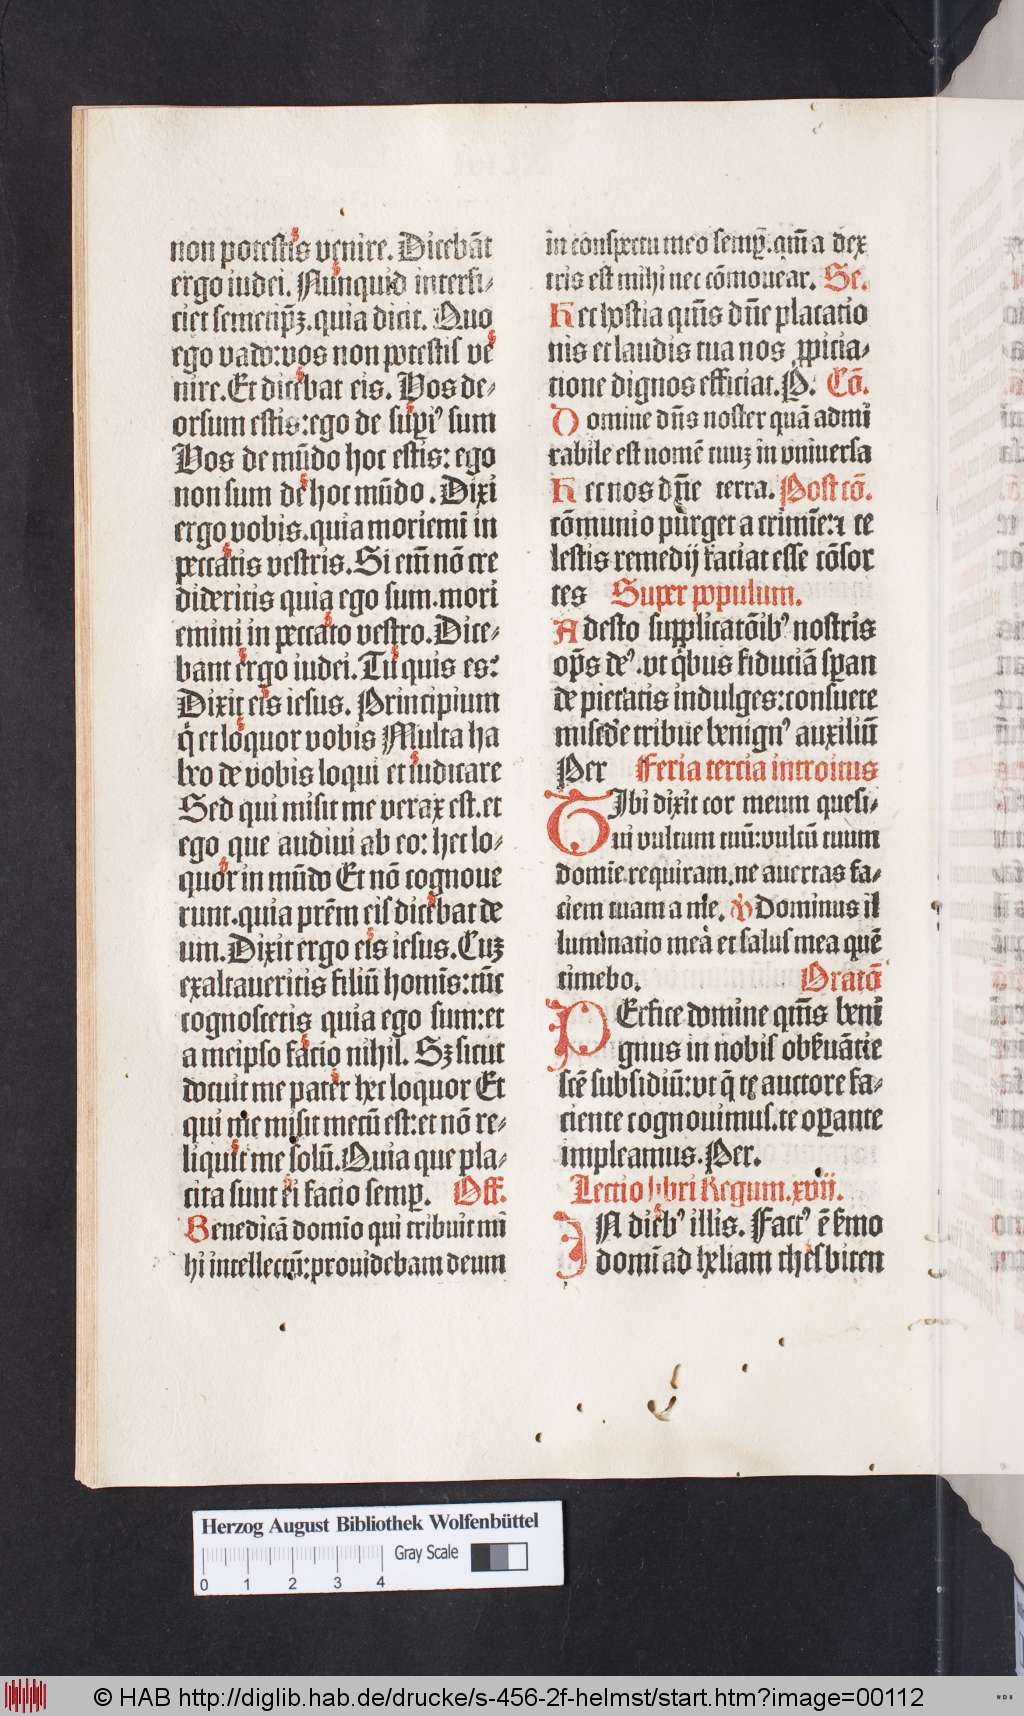 non potestis venire. Dicebāt
ergo iudei. Nunquid interfi⸗
ciet semetip̄ꝫ. quia dicit. Quo
ego vado: vos non potestis ve
nire. Et dicebat eis. Vos de⸗
orsum estis: ego de supꝰ sum
Vos de mūdo hoc estis: ego
non sum de hoc mūdo. Dixi
ergo vobis. quia moriemī in
peccatis vestris. Si em̄ nō cre
dideritis quia ego sum. mori
emini in peccato vestro. Dice⸗
bant ergo iudei. Tu quis es:
Dixit eis iesus. Principium
q̇ et loquor vobis Multa ha
beo de vobis loqui et iudicare
Sed qui misit me verax est. et
ego que audiui ab eo: hec lo⸗
quor in mūdo Et nō cognoue
runt. quia prēm eis dicebat de
um. Dixit ergo eis iesus. Cuꝫ
exaltaueritis filiū homīs: tūc
cognoscetis quia ego sum: et
a meipso facio nihil. Sꝫ sicut
docuit me pater hec loquor Et
qui me misit mecū est: et nō re⸗
liquit me solū. Quia que pla⸗
cita sunt ei facio semꝑ. Off.
Benedicā domīo qui tribuit mi
hi intellectū: prouidebam deum
in conspectu meo semꝑ. qm̄ a dex
tris est mihi nec cōmouear. Se.
Hec hostia qum̄s dn̄e placatio
nis et laudis tua nos ꝓpicia⸗
tione dignos efficiat. P. Cō.
Domine dn̄s noster quā admi
rabile est nomē tuuꝫ in vniuersa
Hec nos dn̄e terra. Post cō.
cōmunio purget a crimīe: ⁊ ce
lestis remedij faciat esse cōsor
tes Super populum.
Adesto supplicatōibꝰ nostris
op̄s deꝰ. vt q̇bus fiduciā sꝑan
de pietatis indulges: consuete
mis̄de tribue benignꝰ auxiliū
Per Feria tercia introitus
Tibi dixit cor meum quesi⸗
ui vultum tuū: vultū tuum
domīe requiram. ne auertas fa⸗
ciem tuam a me. Dominus il
luminatio mea et salus mea quē
timebo. Oratō
Perfice domine qum̄s beni
gnus in nobis obẜuātie
sc̄e subsidiū: vt q̄ te auctore fa⸗
ciente cognouimus. te oꝑante
impleamus. Per.
Lectio libri Regum. xvij.
In diebꝰ illis. Factꝰ ē ẜmo
domī ad heliam thesbiten
Herzog August Bibliothek Wolfenbüttel
Gray Scale
0 1 2 3 4
© HAB http://diglib.hab.de/drucke/s-456-2f-helmst/start.htm?image=00112